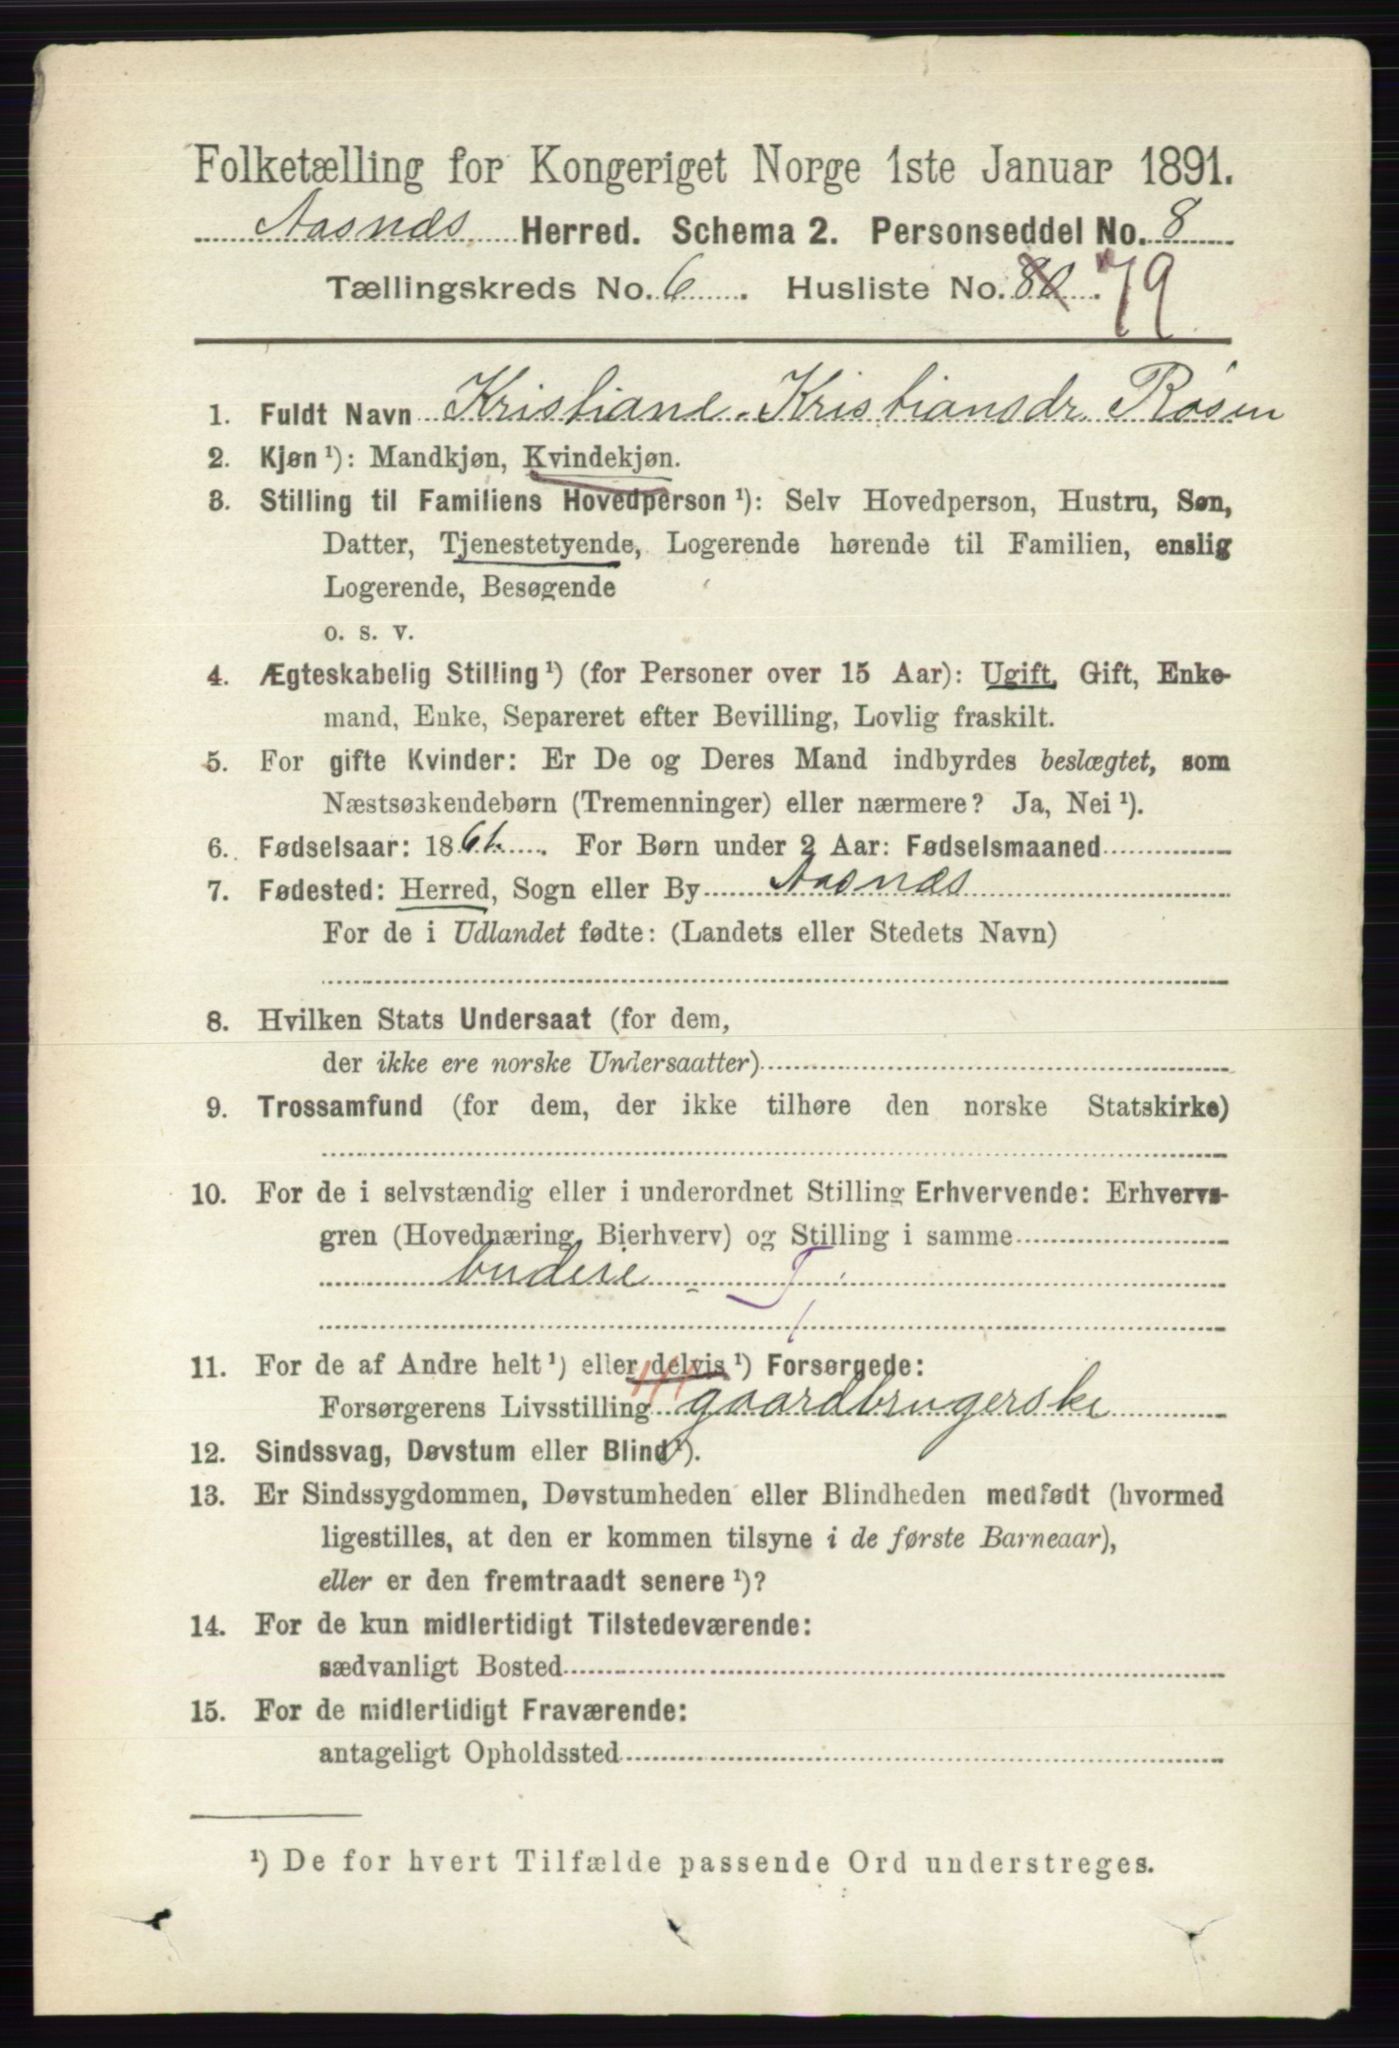 Folketælling for Kongeriget Norge 1ste Januar 1891.
Aasnæs Herred. Schema 2. Personseddel No. 8
Tællingskreds No. 6. Husliste No. 80. 79
1. Fuldt Navn Kristiane Kristiansdr Rosen
2. Kjøn ¹): Mandkjøn, Kvindekjøn.
3. Stilling til Familiens Hovedperson ¹): Selv Hovedperson, Hustru, Søn,
Datter, Tjenestetyende, Logerende hørende til Familien, enslig
Logerende, Besøgende
o. s. v.
4. Ægteskabelig Stilling ¹) (for Personer over 15 Aar): Ugift, Gift, Enke-
mand, Enke, Separeret efter Bevilling, Lovlig fraskilt.
5. For gifte Kvinder: Er De og Deres Mand indbyrdes beslægtet, som
Næstsøskendebørn (Tremenninger) eller nærmere? Ja, Nei ¹).
6. Fødselsaar: 18 For Børn under 2 Aar: Fødselsmaaned
7. Fødested: Herred, Sogn eller By Aasnæs
For de i Udlandet fødte: (Landets eller Stedets Navn)
8. Hvilken Stats Undersaat (for dem,
der ikke ere norske Undersaatter)
9. Trossamfund (for dem, der ikke tilhøre den norske Statskirke)
10. For de i selvstændig eller i underordnet Stilling Erhvervende: Erhvervs-
gren (Hovednæring, Bierhverv) og Stilling i samme
budeie T
11. For de af Andre helt ¹) eller delvis ¹) Forsørgede:
Forsørgerens Livsstilling gaardbrugerske
12. Sindssvag, Døvstum eller Blind ¹).
13. Er Sindssygdommen, Døvstumheden eller Blindheden medfødt (hvormed
ligestilles, at den er kommen tilsyne i de første Barneaar),
eller er den fremtraadt senere ¹)?
14. For de kun midlertidigt Tilstedeværende:
sædvanligt Bosted
15. For de midlertidigt Fraværende:
antageligt Opholdssted
¹) De for hvert Tilfælde passende Ord understreges.